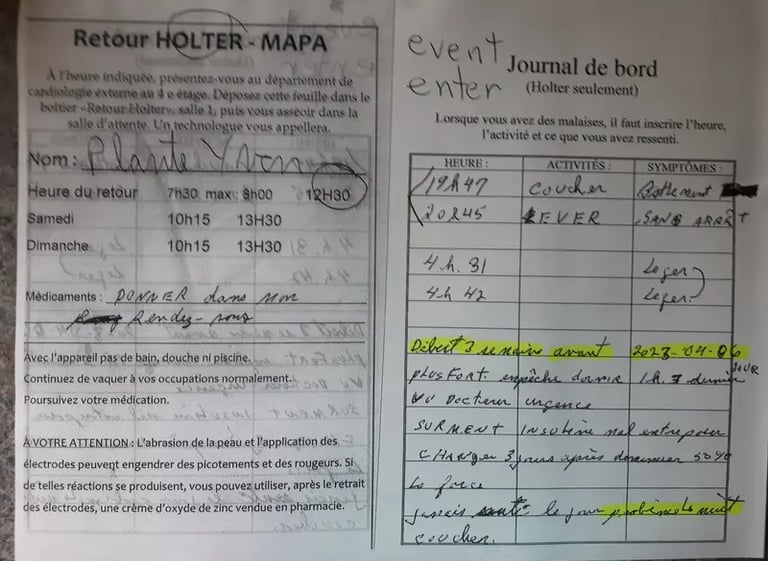 Retour HOLTER - MAPA
À l'heure indiquée, présentez-vous au département de
cardiologie externe au 4 e étage. Déposez cette feuille dans le
boîtier «Retour Holter», salle 1, puis vous asseoir dans la
salle d'attente. Un technologue vous appellera.
Nom : Plante Yvon
Heure du retour 7h30 max : 8h00 12H30
Samedi 10h15 13H30
Dimanche 10h15 13H30
Médicaments : DONNER dans mon
Rendez-vous
Avec l'appareil pas de bain, douche ni piscine.
Continuez de vaquer à vos occupations normalement.
Poursuivez votre médication.
À VOTRE ATTENTION : L'abrasion de la peau et l'application des
électrodes peuvent engendrer des picotements et des rougeurs. Si
de telles réactions se produisent, vous pouvez utiliser, après le retrait
des électrodes, une crème d'oxyde de zinc vendue en pharmacie.
event
enter
Journal de bord
(Holter seulement)
Lorsque vous avez des malaises, il faut inscrire l'heure,
l'activité et ce que vous avez ressenti.
HEURE : ACTIVITÉS : SYMPTÔMES :
19h47 coucher
20h45 LEVER SANS ARRÊT
4 h. 31 Leger
4 h 42 Leger
Début 3 semaine avant 2023-04-06
plus Fort empêche dormir 1h. 7 dernier JOUR
VU Docteur urgence
SURMENT INSULINE mal entreposer
CHANGER 3 jours après diminuer 50%
la force
jamais le jour problème la nuit
coucher.